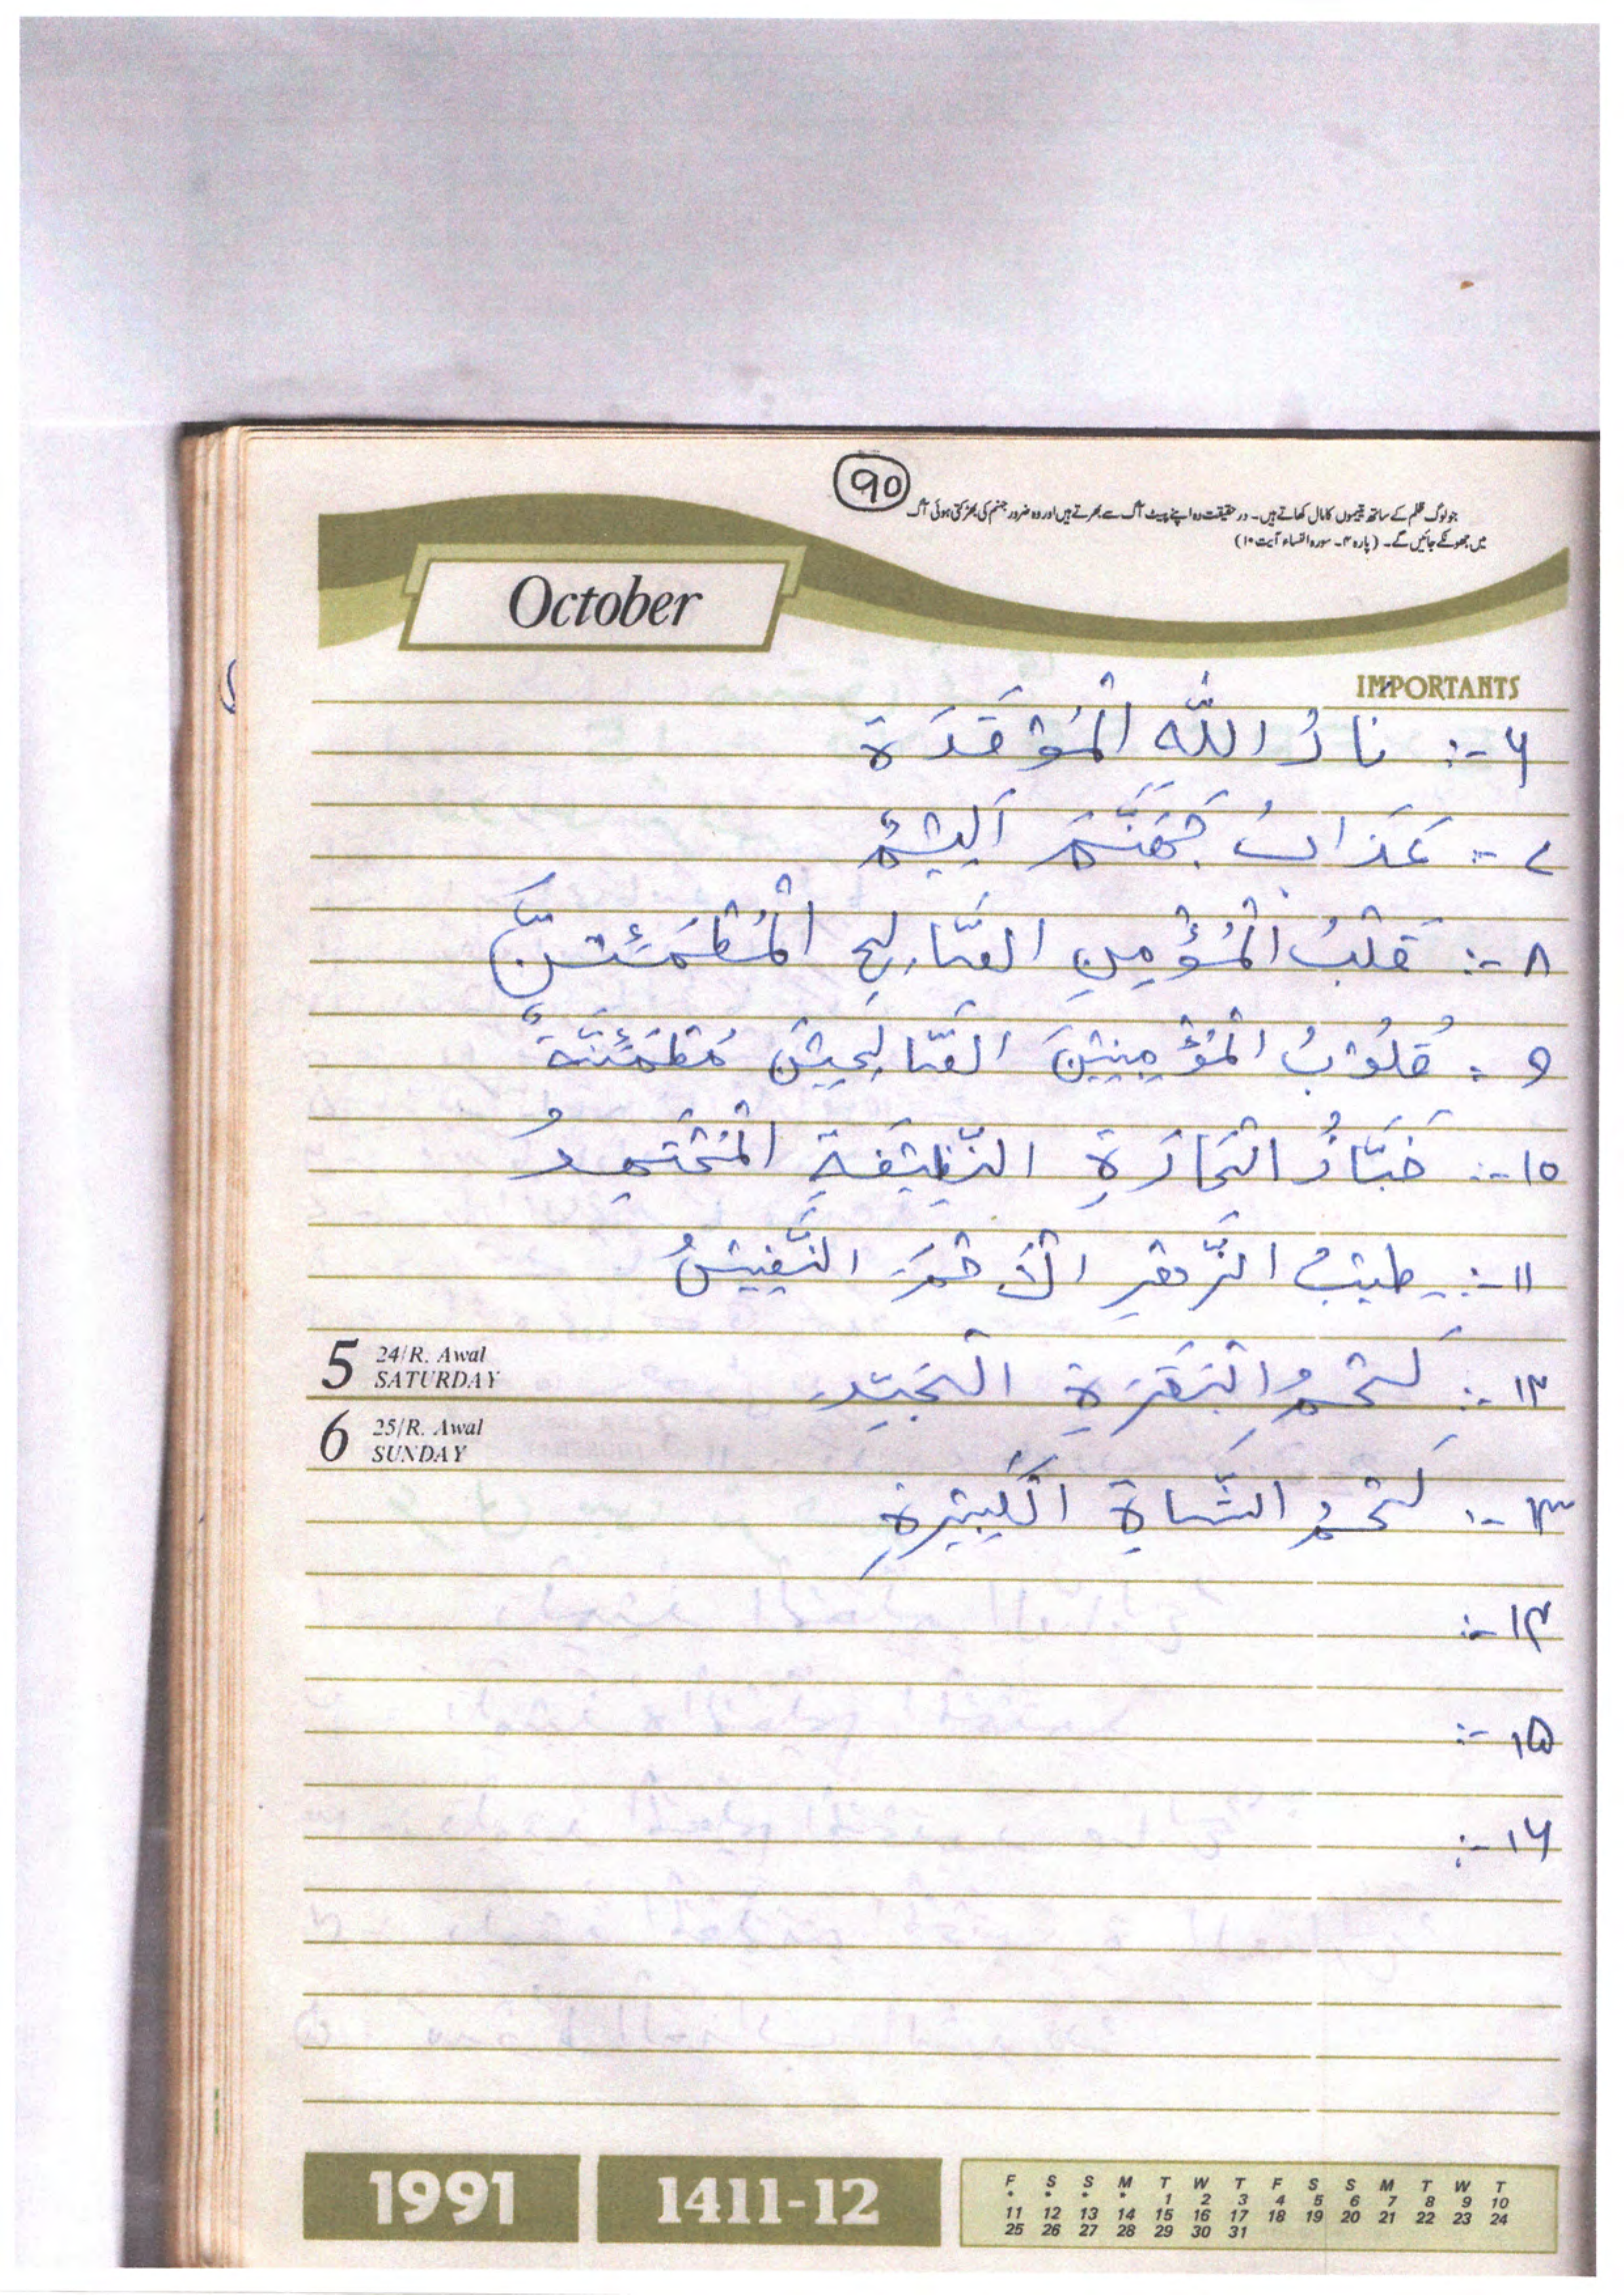 90
جو لوگ ظلم کے ساتھ یتیموں کا مال کھاتے ہیں۔ در حقیقت وہ اپنے پیٹ آگ سے بھرتے ہیں اور وہ ضرور جہنم کی بھڑکتی ہوئی آگ
میں جھونکے جائیں گے۔ (پارہ ۴۔ سورہ النساء آیت ۱۰)
October
IMPORTANTS
۶-: نَارُ اللّٰهِ الْمُوْقَدَة
۷-: عَذَابُ جَهَنَّمَ اَلِيْمٌ
۸-: قَلْبُ الْمُؤْمِنِ الصَّالِحِ الْمُطْمَئِنُّ
۹-: قُلُوْبُ الْمُؤْمِنِيْنَ الصَّالِحِيْنَ مُطْمَئِنَّةٌ
۱۰-: خَبَّازُ الْحَارَةِ النَّظِيْفَةِ الْمُجْتَهِدُ
۱۱-: طبيبُ الْاَحْمَرِ النَّفِيْسُ
۱۲-: لَحْمُ الْبَقَرَةِ الْجَيِّدِ
5 24/R. Awal
SATURDAY
6 25/R. Awal
SUNDAY
۱۳-: لَحْمُ الشَّاةِ الْكَبِيْرَةِ
۱۴-:
۱۵-:
۱۶-:
1991 1411-12
F S S M T W T F S S M T W T
* * * * 1 2 3 4 5 6 7 8 9 10
11 12 13 14 15 16 17 18 19 20 21 22 23 24
25 26 27 28 29 30 31